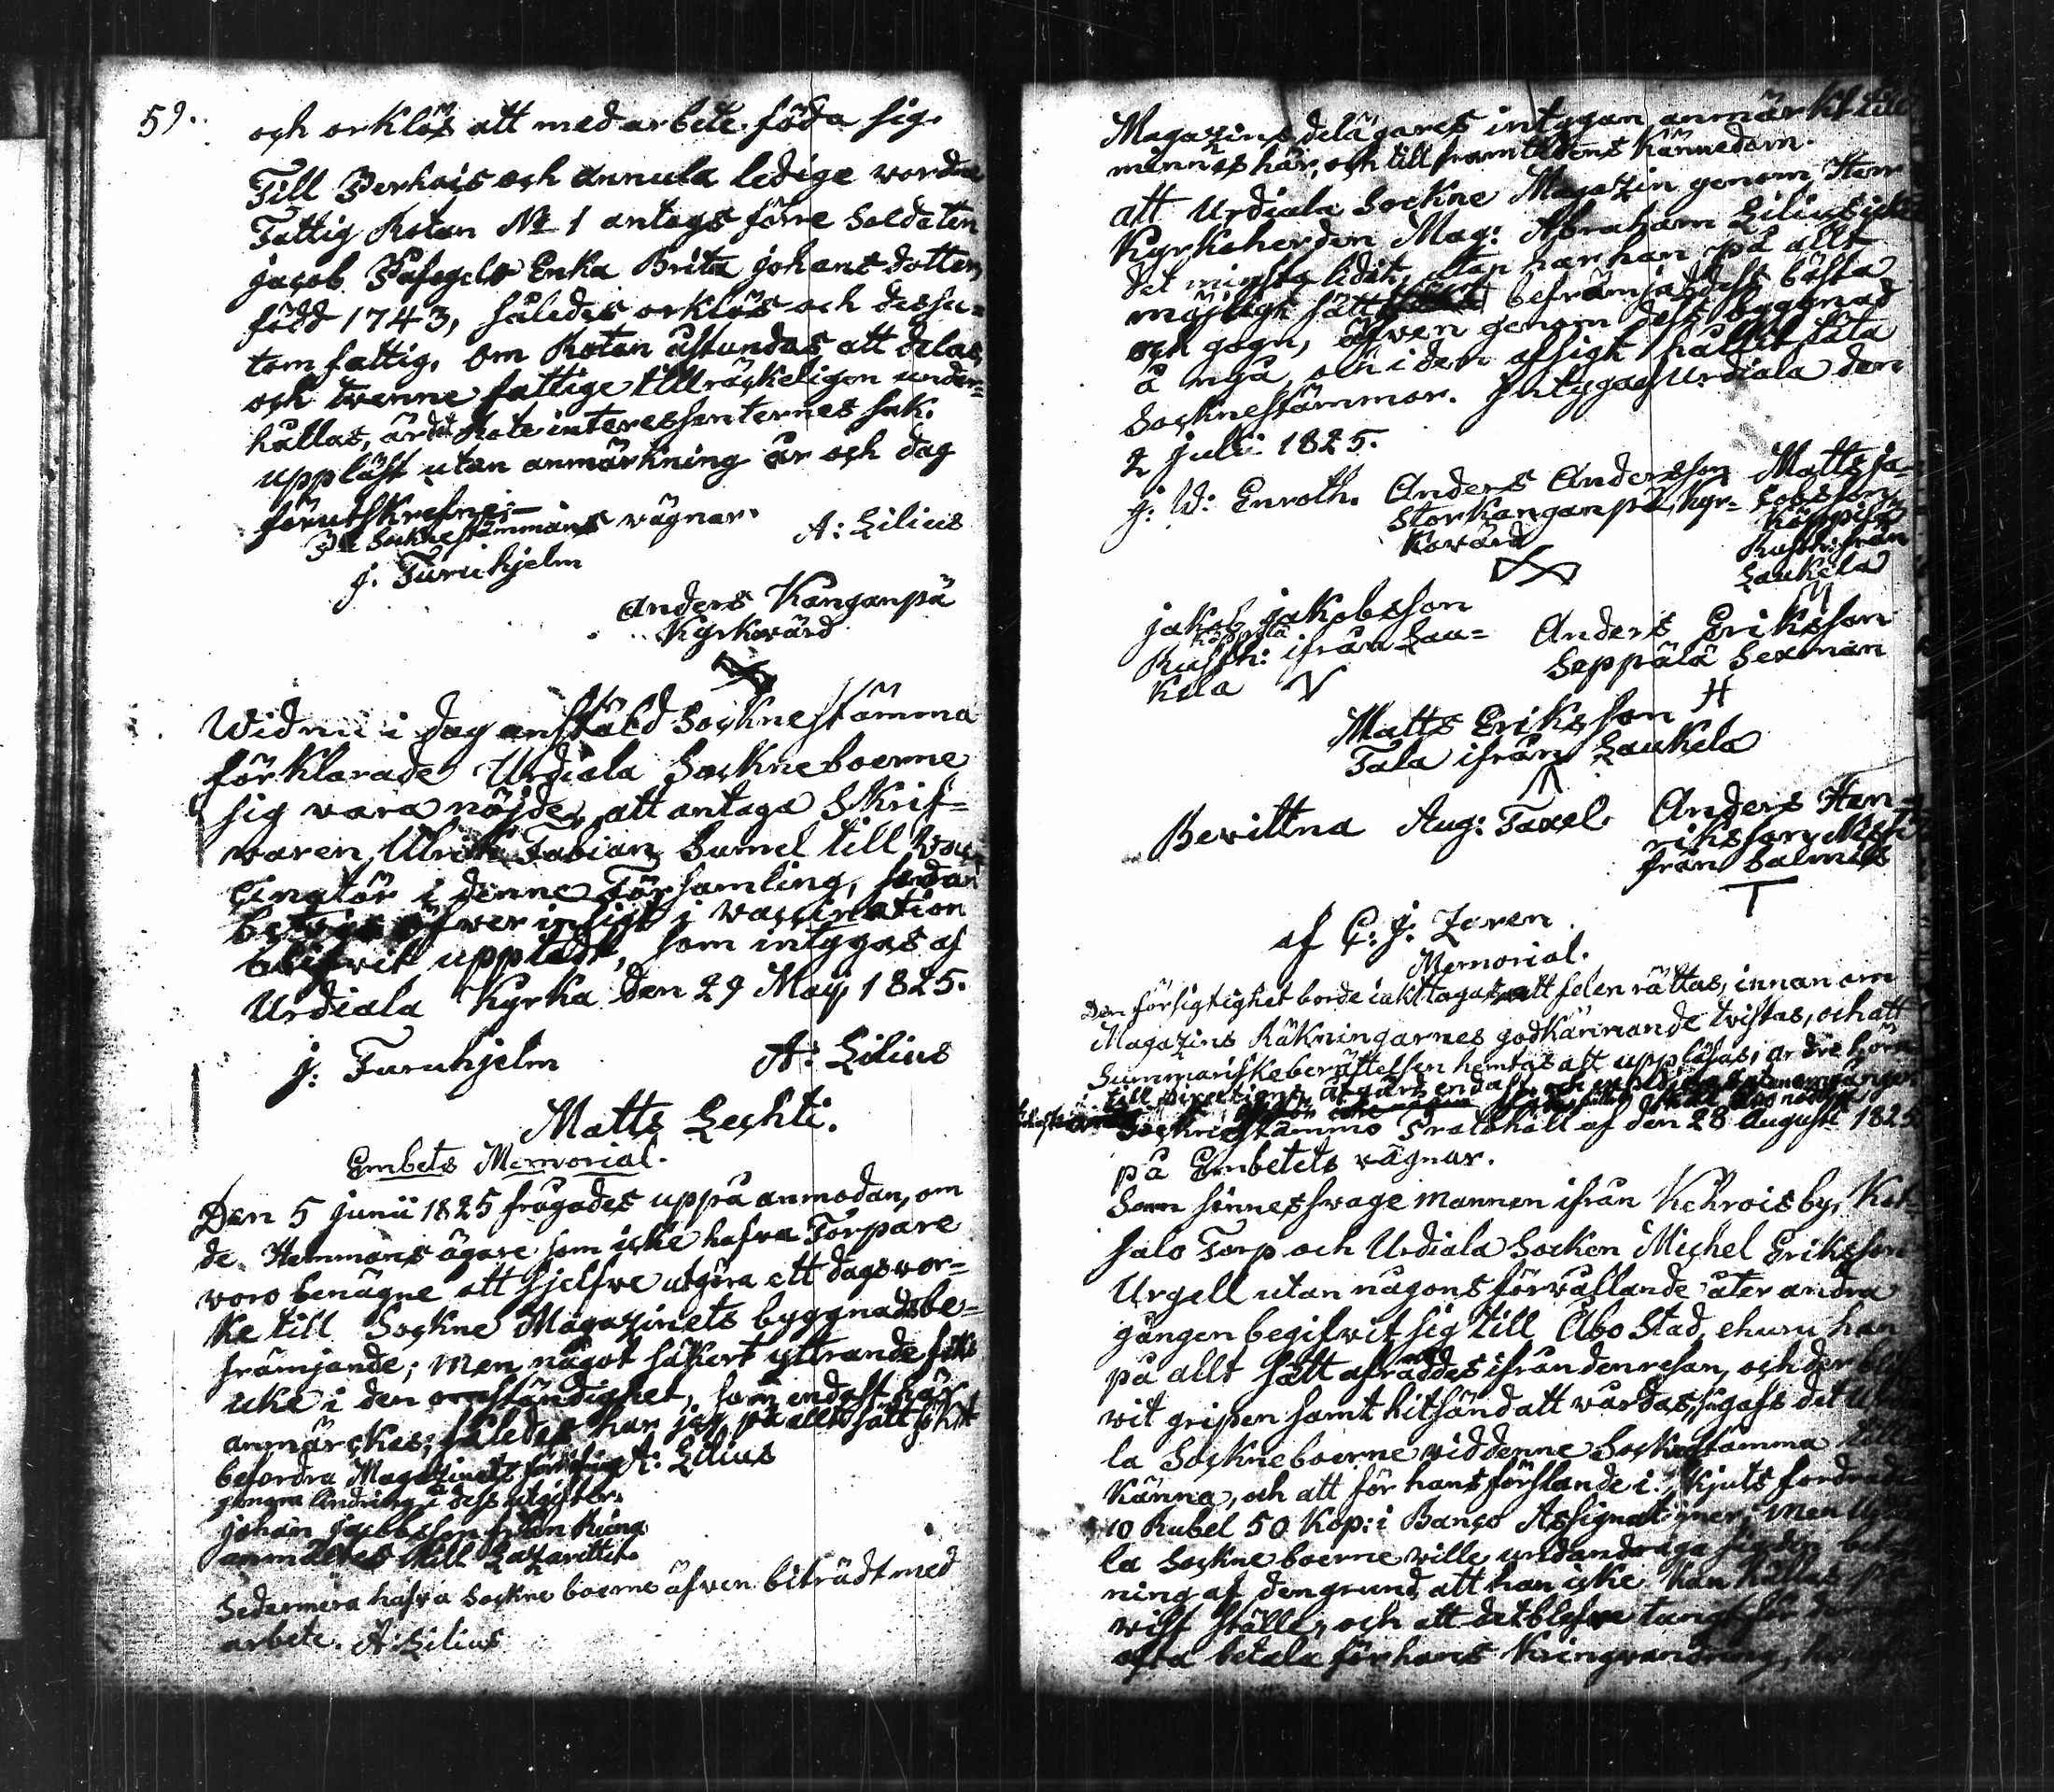 59.
och orklös att med arbete föda sig.
Till Perhois och Annula ledige wordne
Fattig Rotan No 1 antogs förre Soldaten
Jacob Påfogels Enka Brita Johansdotter,
född 1743, således orklös och dessu=
tom fattig. Om Rotan åstundas att delas,
och twenne fattige tillräckeligen under=
hållas, är det Rote interessenternes sak.
uppläst utan anmärkning år och dag
förutskrefne;
På Socknestämmans vägnar. A: Lilius
J. Furuhjelm
Anders Kanganpä
Kyrkwärd
Wid nu i dag anstäld Socknestämma
förklarade Urdiala Sockneboerne
sig vara nöjde, att antaga Skrif=
waren Ulrik Fabian Sumel till Vac=
cinatör i denne Församling, sedan
öfver insigt i vaccination
blifvit upptedt, som intygas af
Urdiala Kyrka den 29 Maij 1825.
J. Furuhjelm A: Lilius
Matts Lechti.
Embets Memorial.
Den 5 Junii 1825 frågades uppå anmodan, om
de Hemmans ägare som icke hafva Torpare
voro benägne att sjelfve utgöra ett dagsver=
ke till Sockne Magazinets byggnads be=
främjande; men något säkert yttrande
icke i den omständighet, som endast här
anmärckes; således har jag på allt sätt sökt
befordra Magazinets A: Lilius
genom lindring i dess utgifter.
Johan Jacobsson från Runa
anmältes till Lazarettet.
Sedermera hafva Sockne boerne äfven biträdt med
arbete. A: Lilius
Magazins delägares intygan anmärkt till
minnes här, och till framtidens kännedom.
att Urdiala Sockne Magazin genom Herr
Kyrkoherden Mag: Abraham Lilius icke
det minsta lidit, utan har han på allt
möjligt sätt befrämjat dess bästa
och gagn, äfven genom dess byggnad
å nyo, och i den afsigt hållit täta
Socknestämmor. Intygas Urdiala den
2 Juli 1825.
J. W: Enroth. Anders Andersson Matts Ja=
Storkanganpä, Kyr= cobsson
kowärd Köppilä
Rusth: från
Laukela
Jakob Jakobsson
Köppilä
Rusth: ifrån Lau= Anders Eriksson
kela Seppälä Sexman
Matts Eriksson
Tala ifrån Laukela
Bevittna Aug: Taxel. Anders Hen=
riksson
från Salmis
af C: J: Zaren.
Memorial.
Den försigtighet borde iakttagas, att felen rättas, innan om
Magazins Räkningarnes godkännande twistas, och att
Summariske berättelsen hemtas att uppläsas,
till Direction
Socknestämmo Protokoll af den 28 August 1825
på Embetets vägnar.
Som sinnesswage mannen ifrån Kehrois by, Kat=
salo Torp och Urdiala Socken Michel Eriksson
Urgell utan någons förvållande åter andra
gången begifvit sig till Åbo Stad, ehuru han
på allt sätt afråddes ifrån den resan, och der blif=
vit gripen samt hitsänd att vårdas, gafs det Urdia=
la Sockneboerne vid denne Sockestämma till
känna, och att för hans förslande i skjuts fordrades
10 Rubel 50 Kop: i Banco Assignationer; men Urdia=
la Sockneboerne wille undandraga sig den betal=
ning af den grund, att han icke kan hållas på
wist ställe, och att det blefve tungt för dem
ofta betala för hans kringvandring,